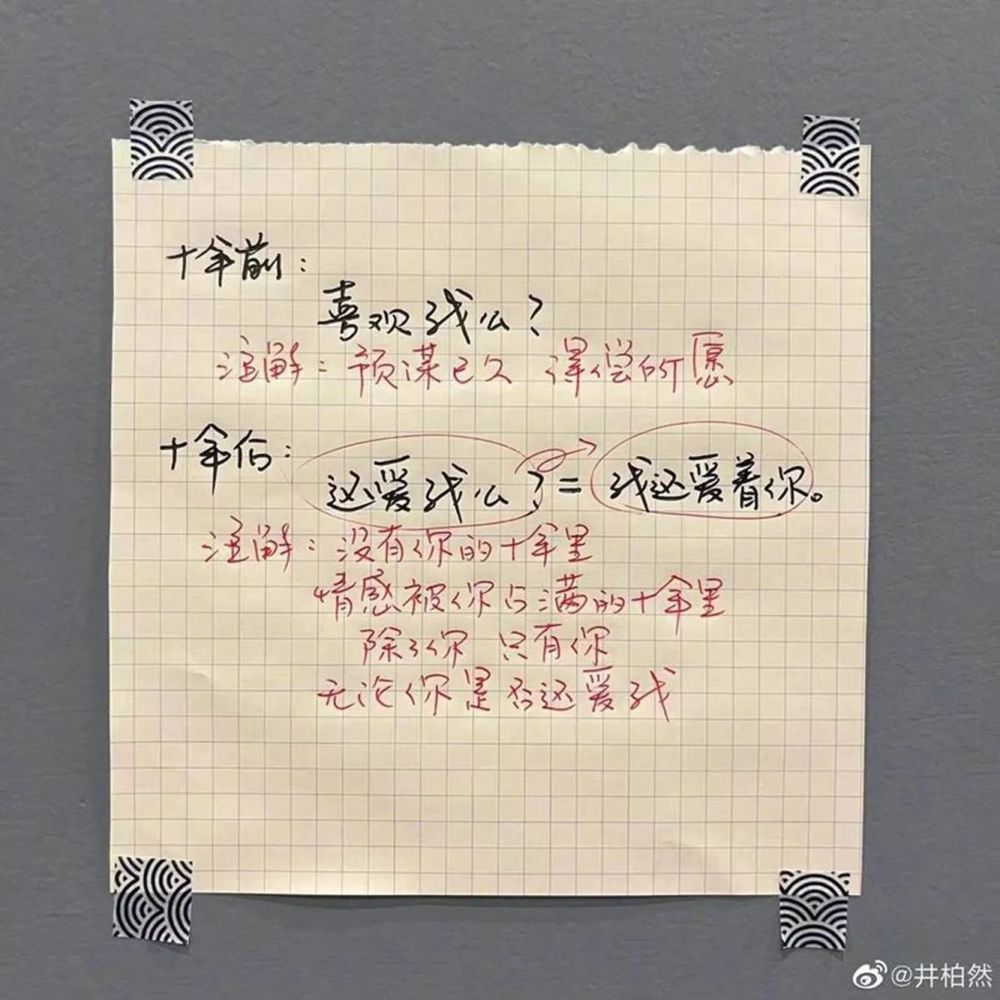 十年前：
喜欢我么？
注解：预谋已久 得偿所愿
十年后：
还爱我么？=我还爱着你。
注解：没有你的十年里
情感被你占满的十年里
除了你 只有你
无论你是否还爱我
@井柏然